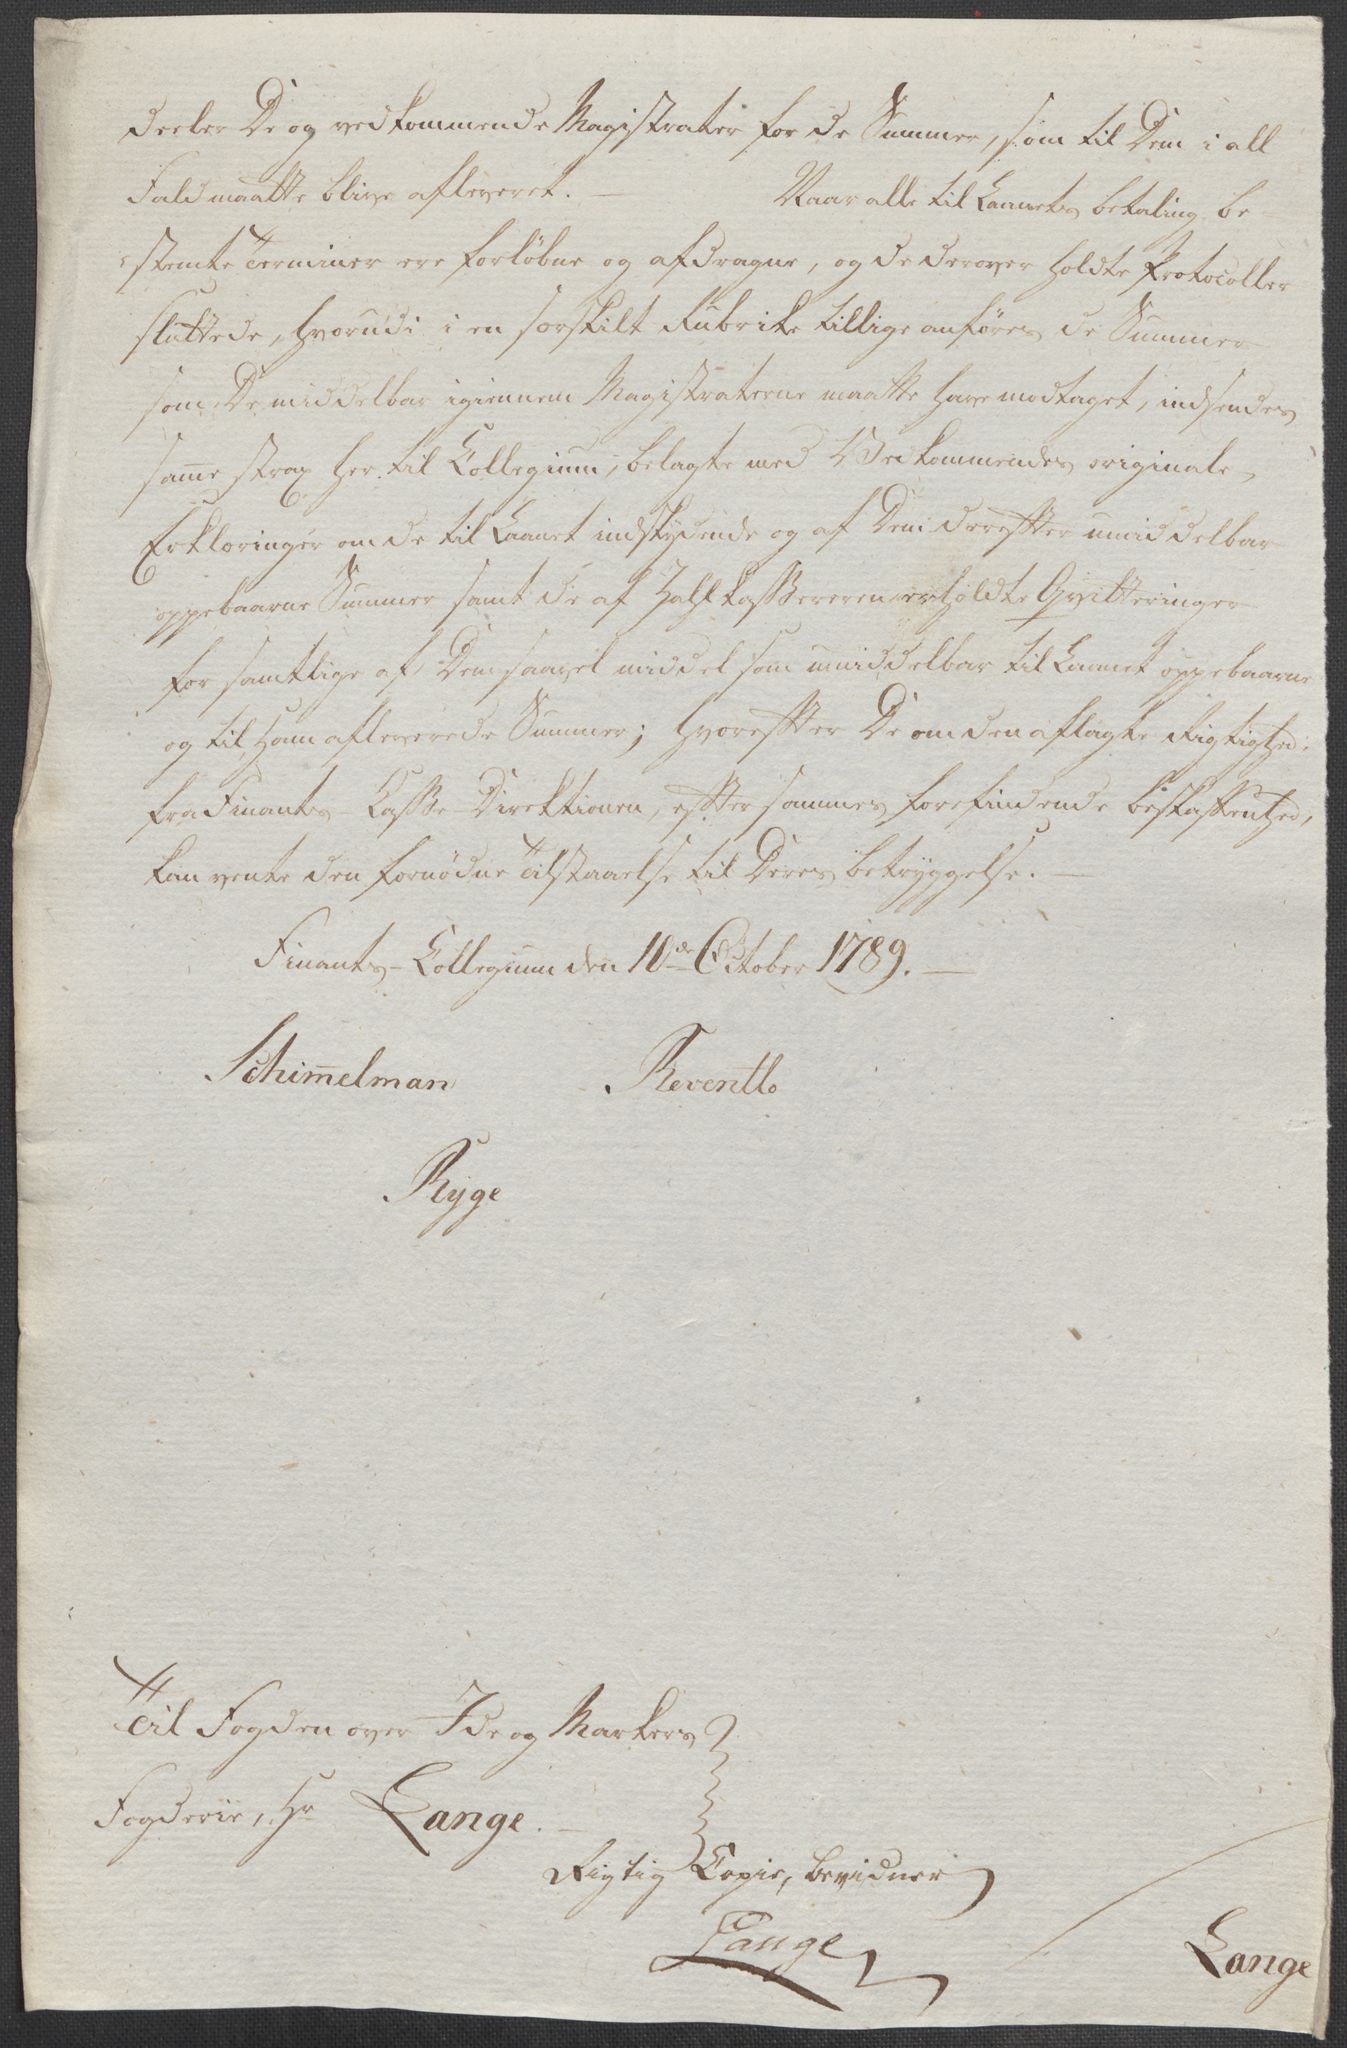 decker De og vedkommende Magistrater for de Summer, som til Dem i all
Fald maatte blive afleveret. — Naar alle til Laanets betaling be-
stemte Terminer ere forløbne og afdragne, og de derover holdte Protocoller
sluttede, hvorudi i en særskilt Rubrike tillige anføres de Summer
som De middelbar igiennem Magistraterne maatte have modtaget, indsendes
sam̅e strax her til Collegium, belagte med Vedkommendes originale
Erklæringer om de til Laanet indskydende og af Dem derefter umiddelbar
oppebaarne Summer samt de af Zahlkassereren erholdte Qvitteringer
for samtlige af Dem saavel middel som umiddelbar til Laanet oppebaarne
og til ham afleverede Summer; hvorefter De om den aflagte Rigtighed,
fra Finants-Casse-Direktionen, efter sammes forefindende beskaffenhed,
kan vente den fornødne Tilstaaelse til Deres betryggelse. —
Finants-Collegium den 10de October 1789. —
Schim̅elman Reventlo
Ryge
Til Fogden over Ide og Markers
Fogderie, Hr Lange. —
Rigtig Copie, bevidner
Lange
Lange